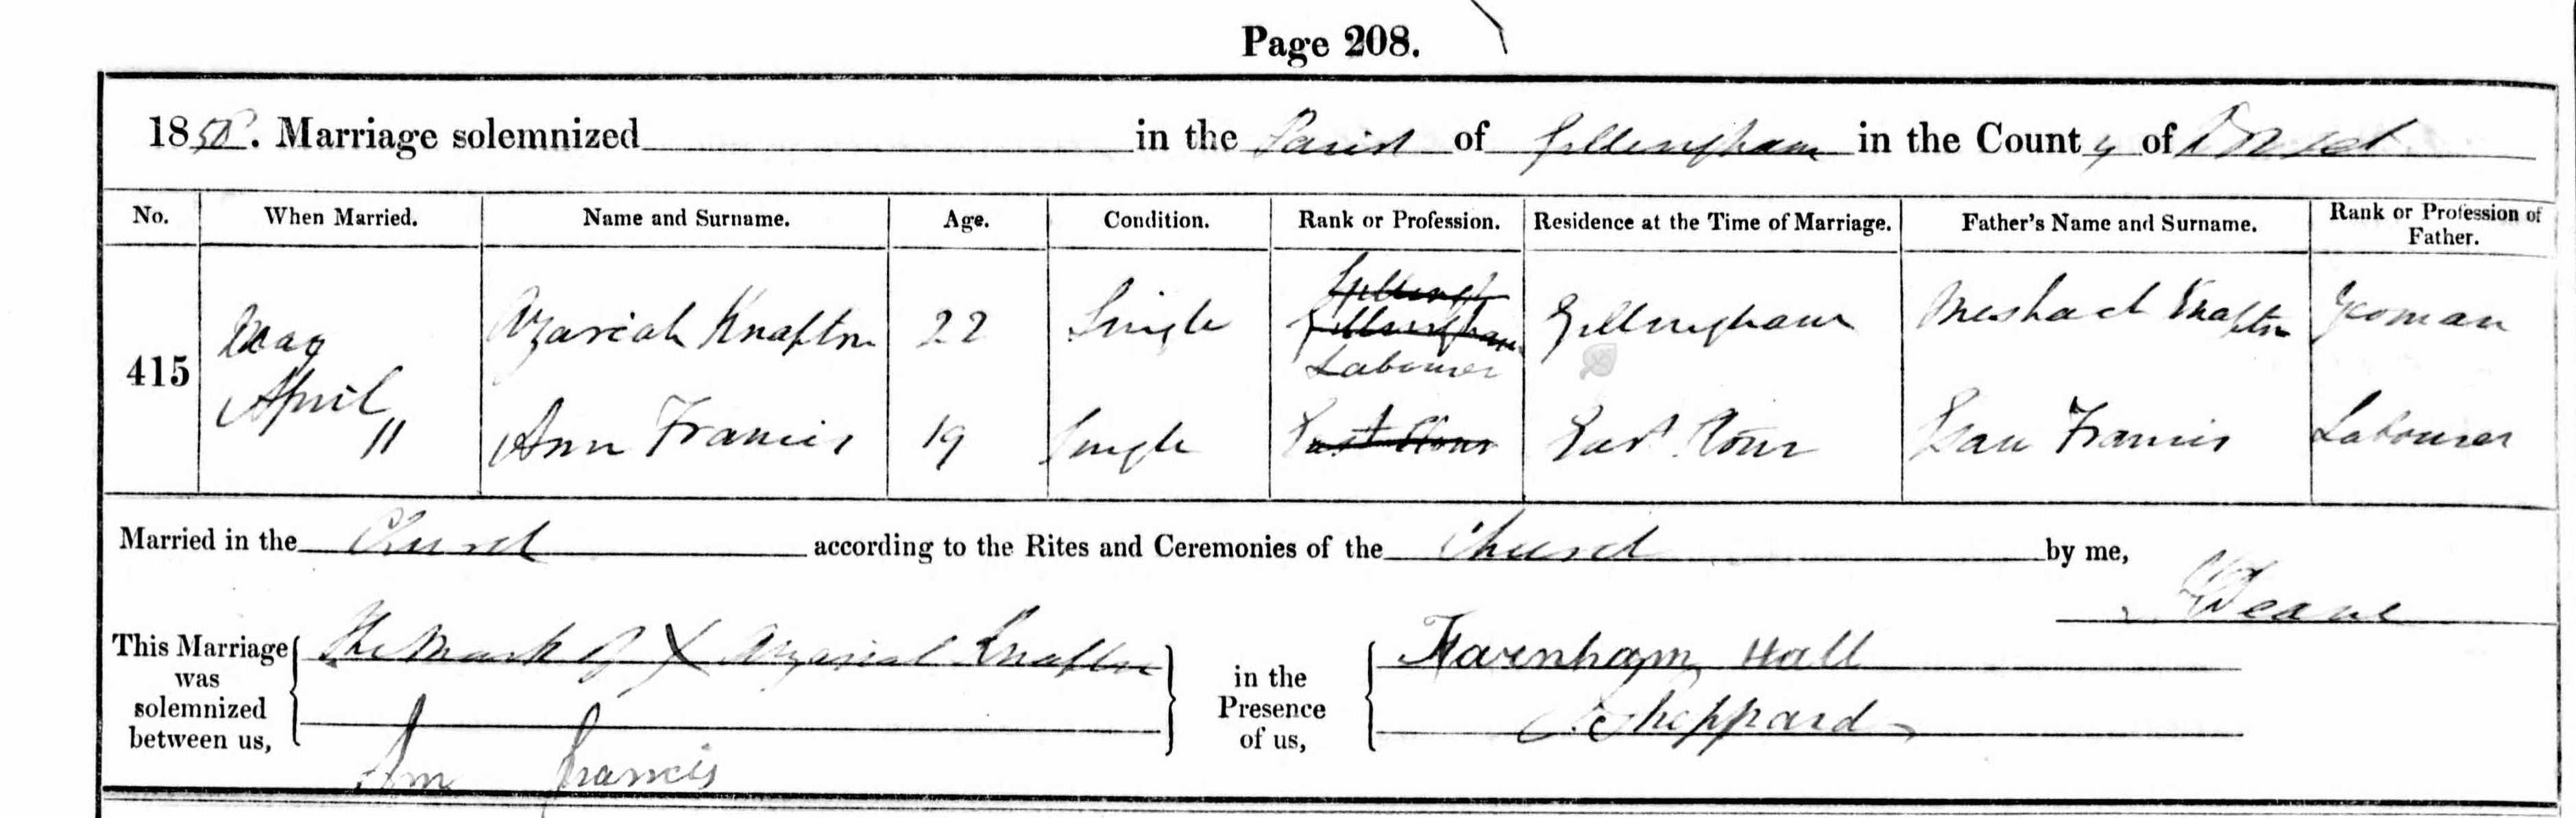 Page 208.
18 . Marriage solemnized in the Parish of Gillingham in the County of Dorset
No. When Married. Name and Surname. Age. Condition. Rank or Profession. Residence at the Time of Marriage. Father's Name and Surname. Rank or Profession of Father.
415 May April 11
Azariah Knapton 22 Single Gillingh Gillingham Labourer Gillingham Meshach Knapton Yeoman
Ann Francis 19 Single East Stour East Stour Esau Francis Labourer
Married in the Church according to the Rites and Ceremonies of the Church by me,
Deane
This Marriage was solemnized between us, The Mark of X Azariah Knapton
Ann Francis
in the Presence of us, Hall
Sheppard